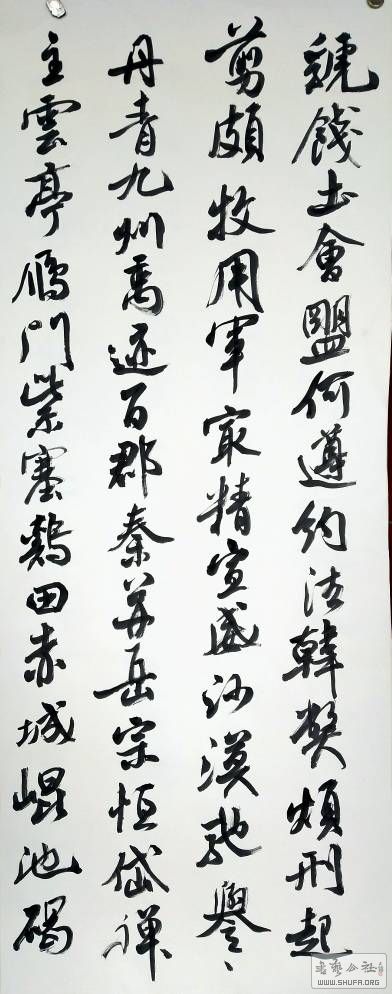 虢餞土會盟何遵約法韓弊煩刑起
翦頗牧用軍最精宣威沙漠馳譽
丹青九州禹迹百郡秦并岳宗恒岱禅
主雲亭鴈門紫塞鷄田赤城崐池碣
书艺公社
WWW.SHUFA.ORG